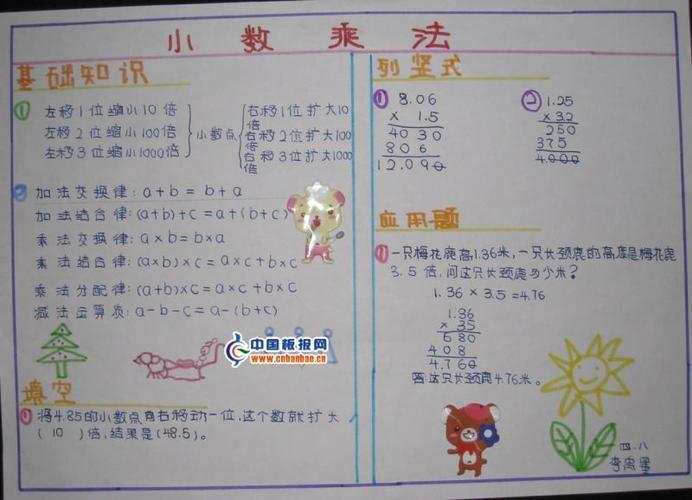 小数乘法
基础知识
①
左移1位缩小10倍
左移2位缩小100倍
左移3位缩小1000倍
小数点
右移1位扩大10倍
右移2位扩大100倍
右移3位扩大1000
② 加法交换律:a+b=b+a
加法结合律:(a+b)+c=a+(b+c)
乘法交换律:a×b=b×a
乘法结合律:(a×b)×c=a×c+b×c
乘法分配律:(a+b)×c=a×c+b×c
减法运算质:a-b-c=a-(b+c)
中国板报网
www.cnbanbao.cn
填空
① 将4.85的小数点向右移动一位,这个数就扩大
(10)倍,结果是(48.5)。
列竖式
① 8.06
× 1.5
4030
806
12.090
② 1.25
×32
250
375
4.000
应用题
① 一只梅花鹿高1.36米,一只长颈鹿的高度是梅花鹿
3.5倍,问这只长颈鹿多少米?
1.36×3.5=4.76
1.36
×35
680
408
4.760
答:这只长颈鹿4.76米。
四.八